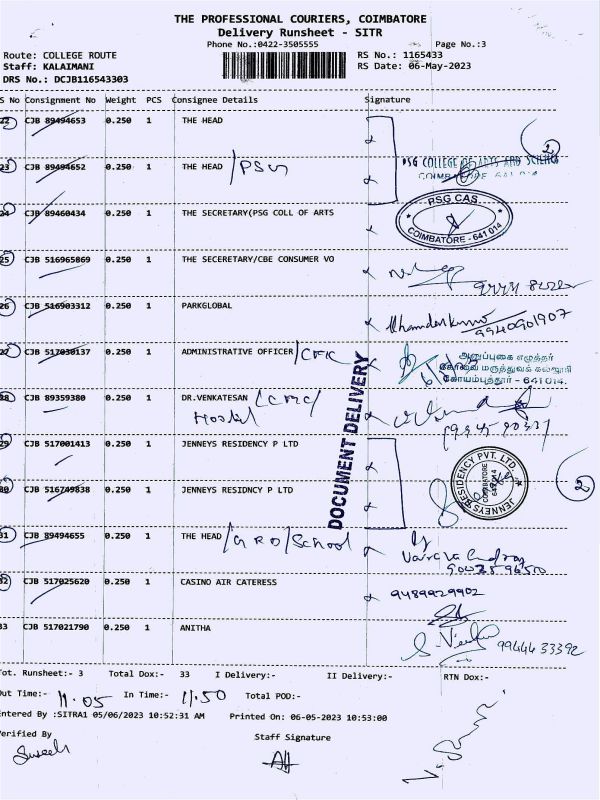 THE PROFESSIONAL COURIERS, COIMBATORE
Delivery Runsheet - SITR
Phone No.:0422-3505555
Page No.:3
Route: COLLEGE ROUTE
RS No.: 1165433
Staff: KALAIMANI
RS Date: 06-May-2023
DRS No.: DCJB116543303
S No Consignment No Weight PCS Consignee Details Signature
22 CJB 89494653 0.250 1 THE HEAD
2
PSG COLLEGE OF ARTS AND SCIENCE
COIMBATORE 641 014
23 CJB 89494652 0.250 1 THE HEAD
PSG CAS
COIMBATORE - 641 014
24 CJB 89460434 0.250 1 THE SECRETARY(PSG COLL OF ARTS
25 CJB 516965869 0.250 1 THE SECERETARY/CBE CONSUMER VO
26 CJB 516903312 0.250 1 PARKGLOBAL
9940901907
27 CJB 517030137 0.250 1 ADMINISTRATIVE OFFICER
அனுப்புகை எழுத்தர்
கோவை மருத்துவக் கல்லூரி
கோயம்புத்தூர் - 641 014.
28 CJB 89359380 0.250 1 DR.VENKATESAN
Hostel
DOCUMENT DELIVERY
29 CJB 517001413 0.250 1 JENNEYS RESIDENCY P LTD
JENNEYS RESIDENCY PVT. LTD.
COIMBATORE
641 014
2
30 CJB 516749838 0.250 1 JENNEYS RESIDNCY P LTD
31 CJB 89494655 0.250 1 THE HEAD /GRD/School
32 CJB 517025620 0.250 1 CASINO AIR CATERESS
9489929902
33 CJB 517021790 0.250 1 ANITHA
99444 33392
Tot. Runsheet:- 3 Total Dox:- 33 I Delivery:- II Delivery:- RTN Dox:-
Out Time:- 11.05 In Time:- 11.50 Total POD:-
Entered By :SITRA1 05/06/2023 10:52:31 AM Printed On: 06-05-2023 10:53:00
Verified By
Staff Signature